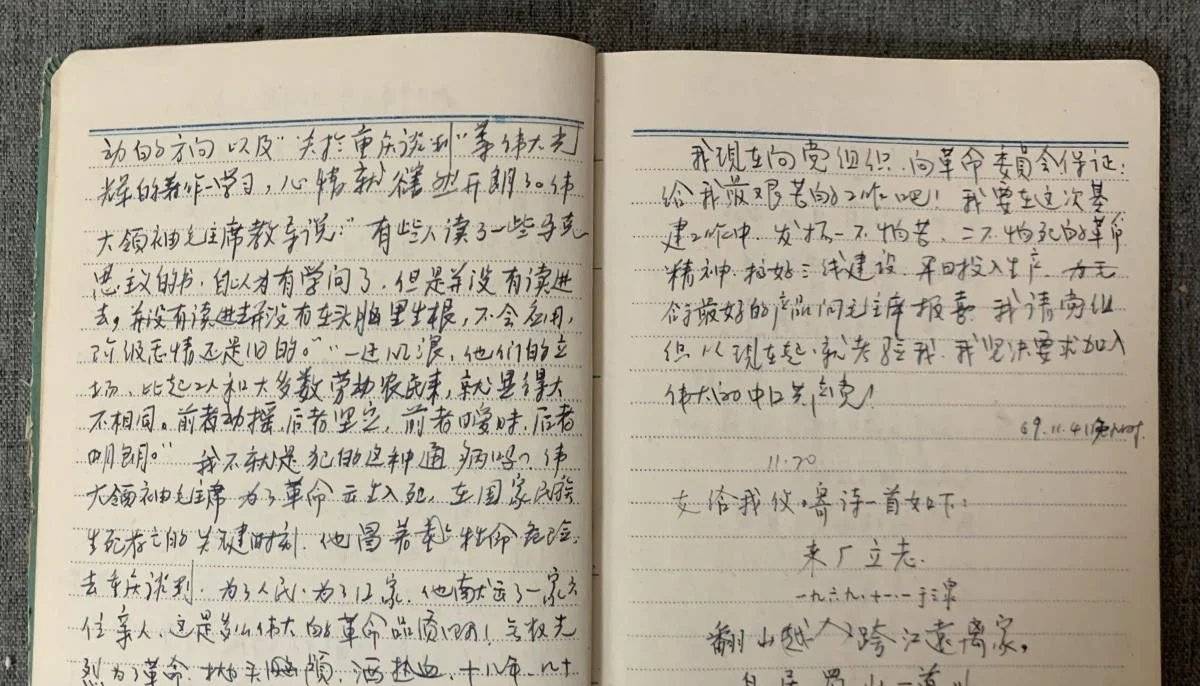 动的方向以及“关於重庆谈判”等伟大光
辉的著作一学习，心情就豁然开朗了。伟
大领袖毛主席教导说：“有些人读了一些马克
思主义的书，自以为有学问了，但是并没有读进
去，并没有读进去并没有在头脑里生根，不会应用，
阶级感情还是旧的。”“一进风浪，他们的立
场，比起工人和大多数劳动农民来，就显得大
不相同。前者动摇，后者坚定，前者暧昧，后者
明朗。” 我不就是犯的这种通病吗？伟
大领袖毛主席为了革命出生入死，在国家民族
生死存亡的关键时刻，他冒着 牲命危险，
去重庆谈判，为了人民，为了国家，他献出了一家六
位亲人，这是多么伟大的革命品质啊！ 先
烈为了革命，抛头颅，洒热血，十八年，九十
我现在向党组织，向革命委员会保证：
给我最艰苦的工作吧！我要在这次基
建工作中，发扬一不怕苦，二不怕死的革命
精神，搞好三线建设，早日投入生产，
最好的产品向毛主席报喜，我请党组
织从现在起，就考验我，我坚决要求加入
伟大的中国共产党！
69.11.4
11.20
友给我 寄诗一首如下：
来厂立志
一九六九.十一.一于
翻山越 跨江远离家，